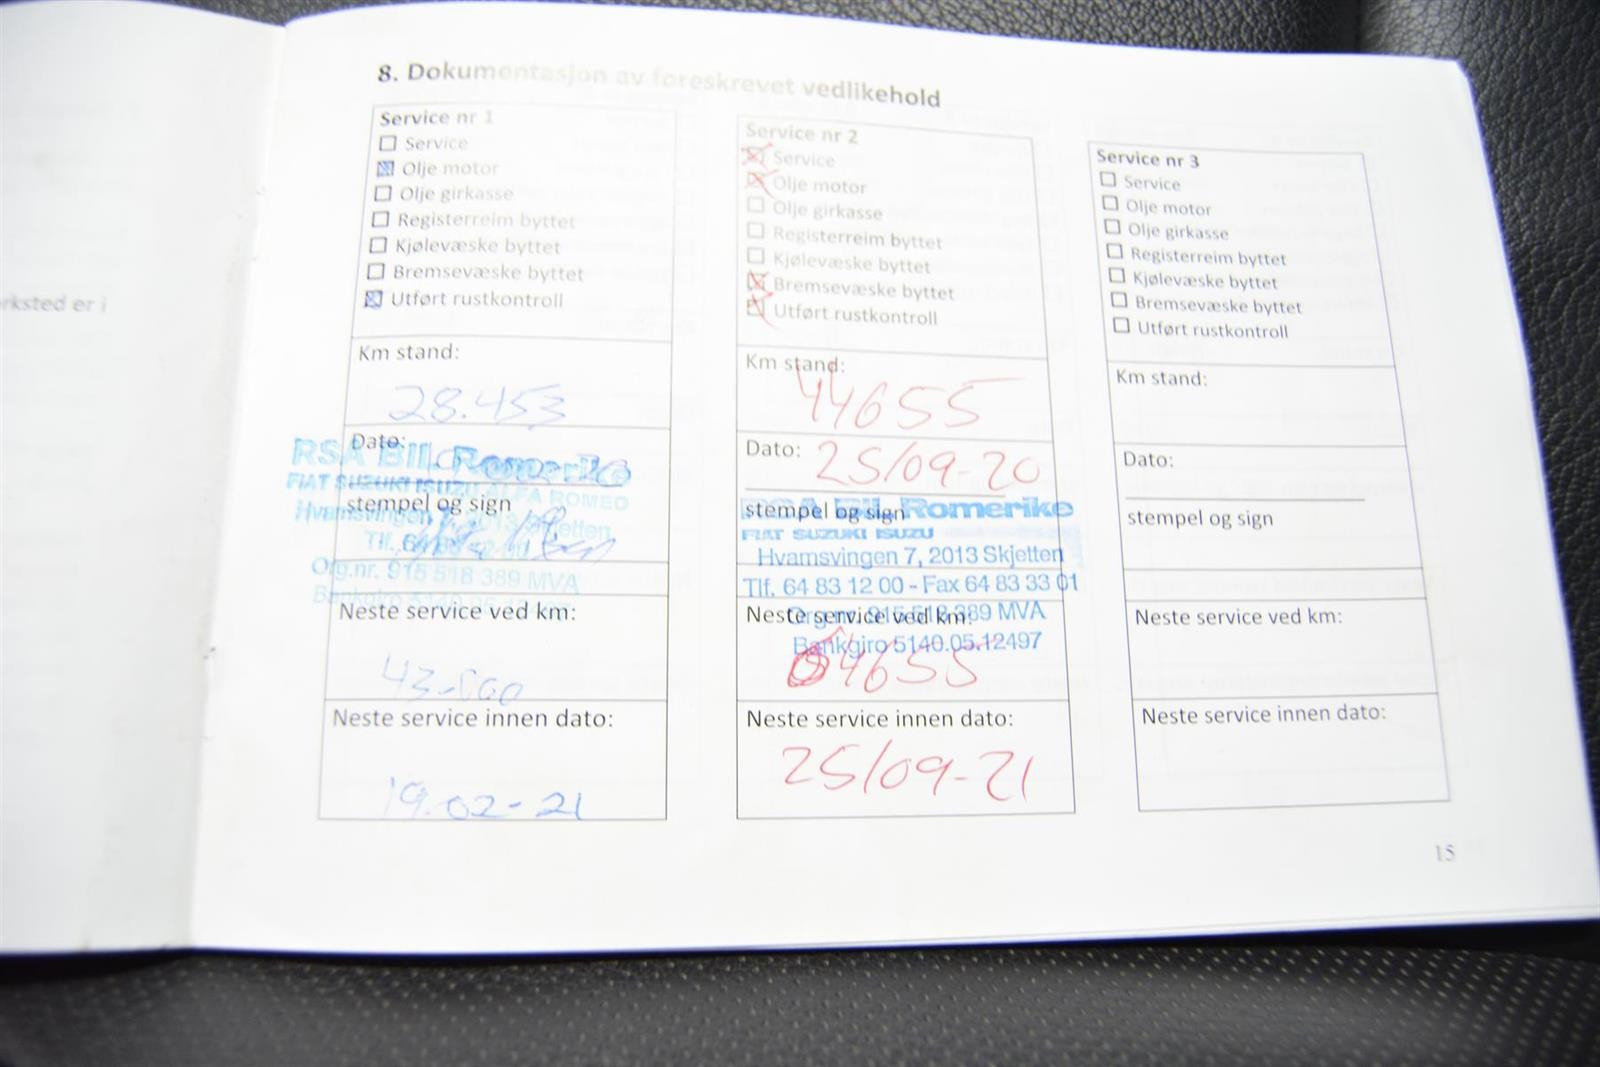 rksted er i
8. Dokumentasjon av foreskrevet vedlikehold
Service nr 1
Service
Olje motor
Olje girkasse
Registerreim byttet
Kjølevæske byttet
Bremsevæske byttet
Utført rustkontroll
Km stand:
28.453
Dato:
RSA BIL Romerike
FIAT SUZUKI ISUZU ALFA ROMEO
stempel og sign
Hvamsvingen 7, 2013 Skjetten
Tlf. 64 83 12 00
Org.nr. 915 518 389 MVA
Neste service ved km:
43-000
Neste service innen dato:
19.02-21
Service nr 2
Service
Olje motor
Olje girkasse
Registerreim byttet
Kjølevæske byttet
Bremsevæske byttet
Utført rustkontroll
Km stand:
44655
Dato: 25/09-20
RSA BIL Romerike
stempel og sign
FIAT SUZUKI ISUZU
Hvamsvingen 7, 2013 Skjetten
Tlf. 64 83 12 00 - Fax 64 83 33 01
Org.nr. 915 518 389 MVA
Neste service ved km:
Bankgiro 5140.05.12497
64655
Neste service innen dato:
25/09-21
Service nr 3
Service
Olje motor
Olje girkasse
Registerreim byttet
Kjølevæske byttet
Bremsevæske byttet
Utført rustkontroll
Km stand:
Dato:
stempel og sign
Neste service ved km:
Neste service innen dato:
15